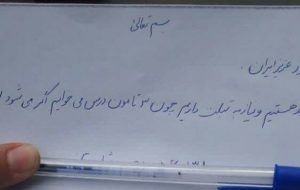 بسم تعالی
عزیز ایران.
هستیم و نیاز به تبلت داریم چون ۳ تامون درس می خوانیم اگر می شود